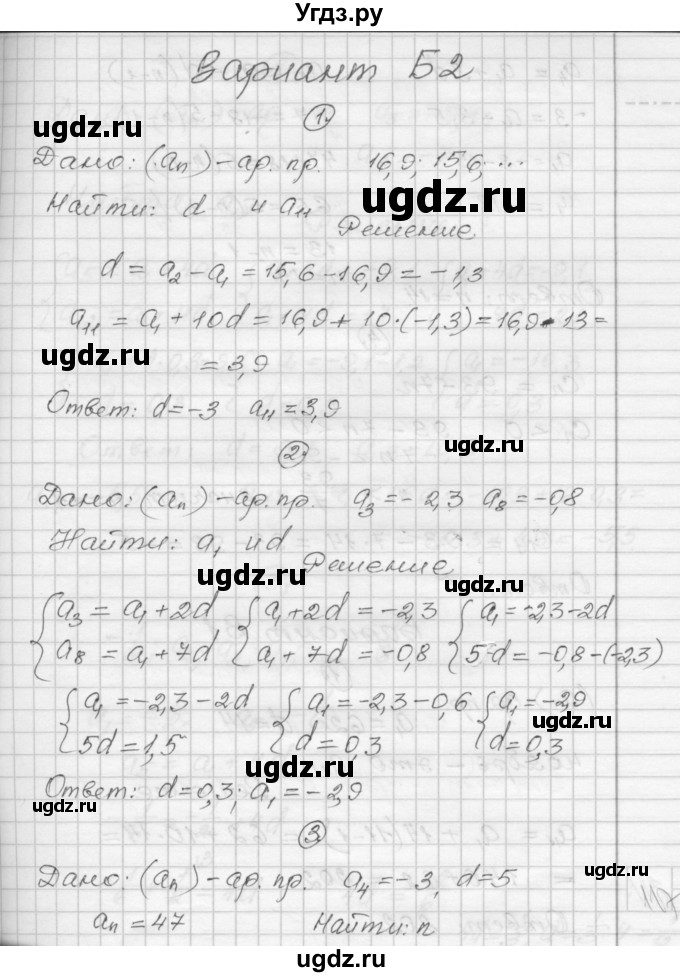 Угдз.ру
Вариант Б2
1.
ugdz.ru
Дано: (aₙ) – ар. пр. 16,9; 15,6; ...
ugdz.ru
Найти: d и a₁₁
Решение
d = a₂ – a₁ = 15,6 – 16,9 = –1,3
a₁₁ = a₁ + 10d = 16,9 + 10·(–1,3) = 16,9 – 13 =
ugdz.ru
= 3,9
Ответ: d = –3 a₁₁ = 3,9
ugdz.ru
2.
Дано: (aₙ) – ар. пр. a₃ = – 2,3 a₈ = –0,8
Найти: a₁ и d
Решение
ugdz.ru
ugdz.ru
{ a₃ = a₁ + 2d { a₁ + 2d = –2,3 { a₁ = –2,3 – 2d
a₈ = a₁ + 7d a₁ + 7d = –0,8 5d = –0,8 – (–2,3)
{ a₁ = –2,3 – 2d { a₁ = –2,3 – 0,6 { a₁ = –2,9
5d = 1,5 d = 0,3 d = 0,3
ugdz.ru
ugdz.ru
Ответ: d = 0,3; a₁ = –2,9
ugdz.ru
3.
Дано: (aₙ) – ар. пр. a₄ = – 3, d = 5
ugdz.ru
aₙ = 47 Найти: n
ugdz.ru